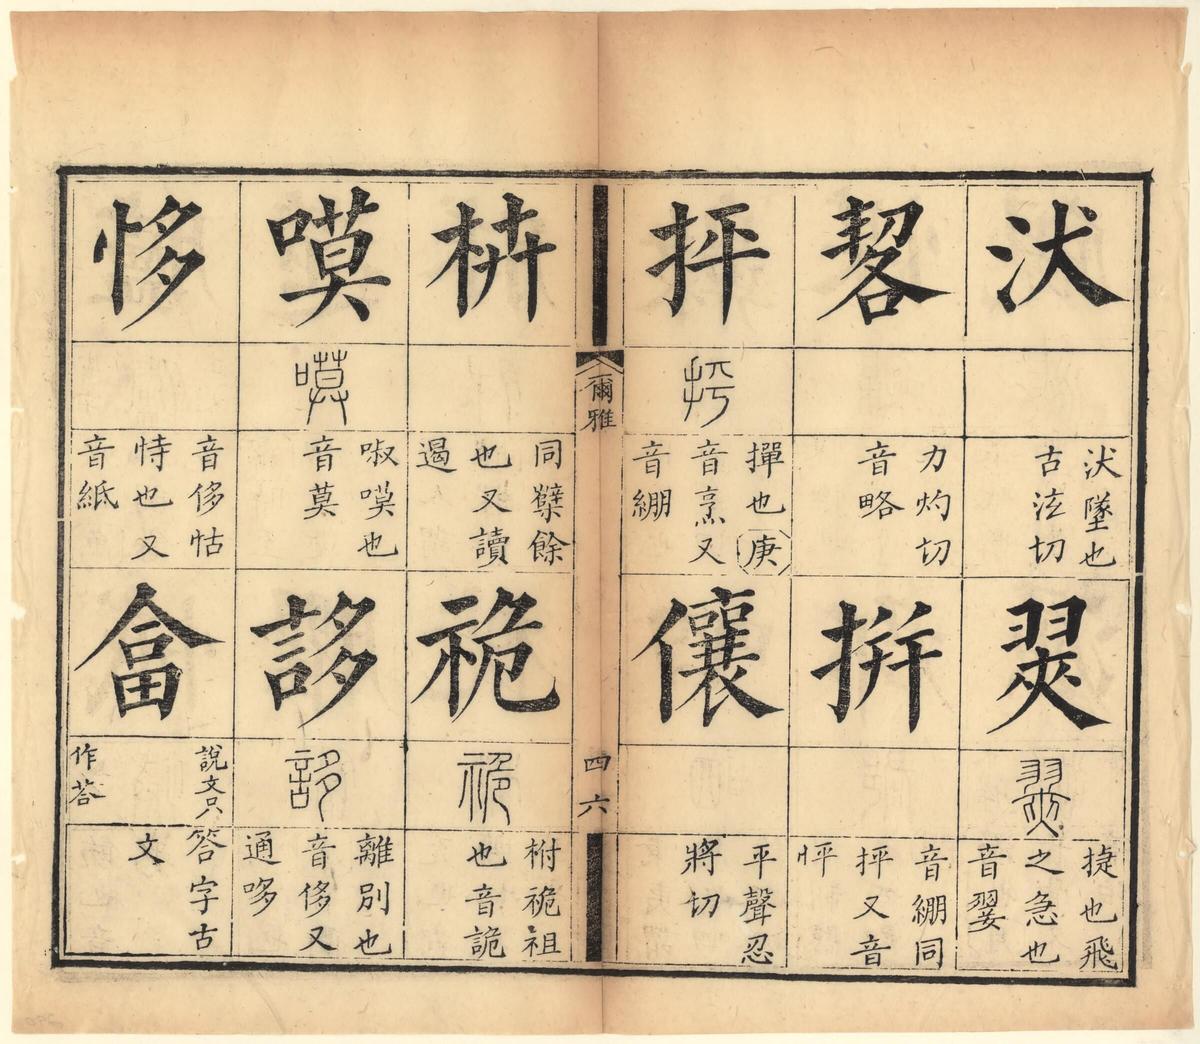 汱
汱墜也
古泫切
翜
翜
捷也飛
之急也
音翣
䂮
力灼切
音略
拼
音綳同
抨又音
怦
抨
抨
撣也庚
音烹又
音綳
儴
平聲忍
將切
爾雅
四六
枿
同櫱餘
也又讀
遏
祪
祪
祔祪祖
也音詭
嗼
嗼
㖡嗼也
音莫
誃
誃
離別也
音侈又
通哆
恀
音侈怙
恃也又
音紙
畣
說文只
作荅
答字古
文